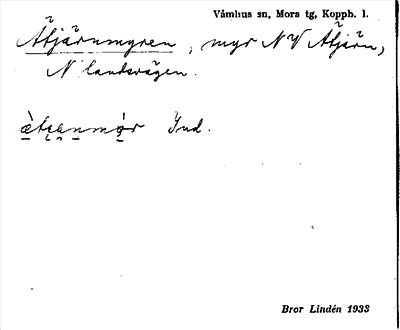 Våmhus sn, Mora tg, Koppb. l.
Åtjärnmyren, myr NV Åtjärn,
N landsvägen.
Ind.
Bror Lindén 1933